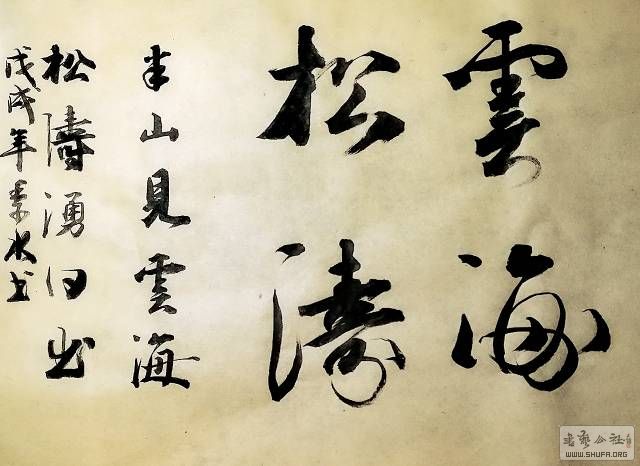 雲海
松濤
半山見雲海
松濤湧日出
戊戌年秉水书
书艺公社
WWW.SHUFA.ORG